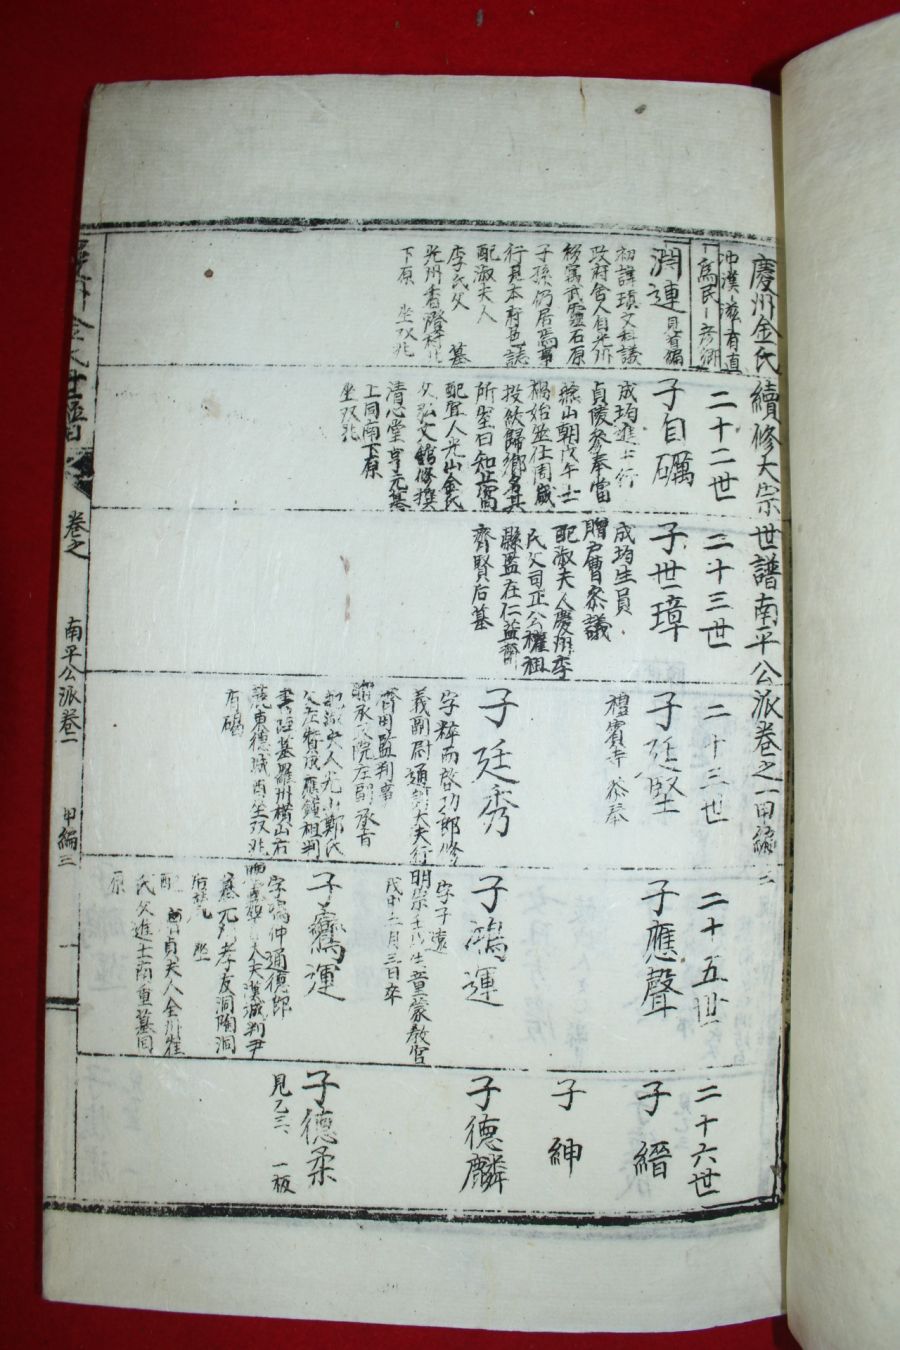 慶州金氏續修大宗世譜南平公派卷之一甲編
沖漢 滋 有直
爲民
潤連
初諱瑱文科議
政府舍人自光州
移寓武靈石原
子孫仍居焉事
行見本府邑誌
配淑夫人
李氏父 墓
光州
下原 坐双兆
二十二世
子自礪
成均進士行
貞陵參奉當
燕山朝戊午士
禍始並仕周歲
投紱歸鄕名其
所室曰知止窩
配宜人光山金氏
父弘文館修撰
清心堂亨元墓
上同南下原
坐双兆
二十三世
子世璋
成均生員
贈戶曹參議
配淑夫人慶州李
氏父司正公權祖
縣監在仁益齋
齊賢后墓
二十三世
子廷堅
禮賓寺參奉
子廷秀
字粹而啓功郎修
義副尉通訓大夫行
濟用監判事
贈承政院左副承旨
配淑夫人光山鄭氏
父左贊成應鍾祖判
書陞墓羅州橫山右
有碣
二十五世
子應聲
子鴻運
字子遠
明崇壬戌生童蒙教官
戊申二月三日卒
子鶱運
字鴻仲通德郎
大夫漢城判尹
孝友洞陶洞
后麓 坐
配 貞夫人全州崔
氏父進士南重墓同
原
二十六世
子縉
子紳
子德麟
子德柔
見乙三 一板
慶州金氏世譜 卷之 南平公派卷一 甲編三 一